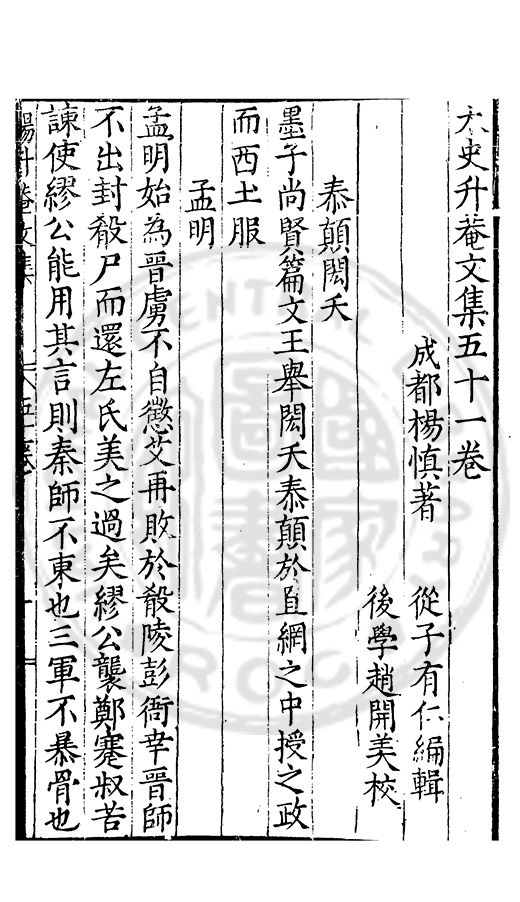 太史升菴文集五十一卷
成都楊慎著 從子有仁編輯
後學趙開美校
泰顛閎夭
墨子尚賢篇文王舉閎夭泰顛於罝網之中授之政
而西土服
孟明
孟明始為晉虜不自懲艾再敗於殽陵彭衙幸晉師
不出封殽尸而還左氏美之過矣繆公襲鄭蹇叔苦
諫使繆公能用其言則秦師不東也三軍不暴骨也
楊升菴文集